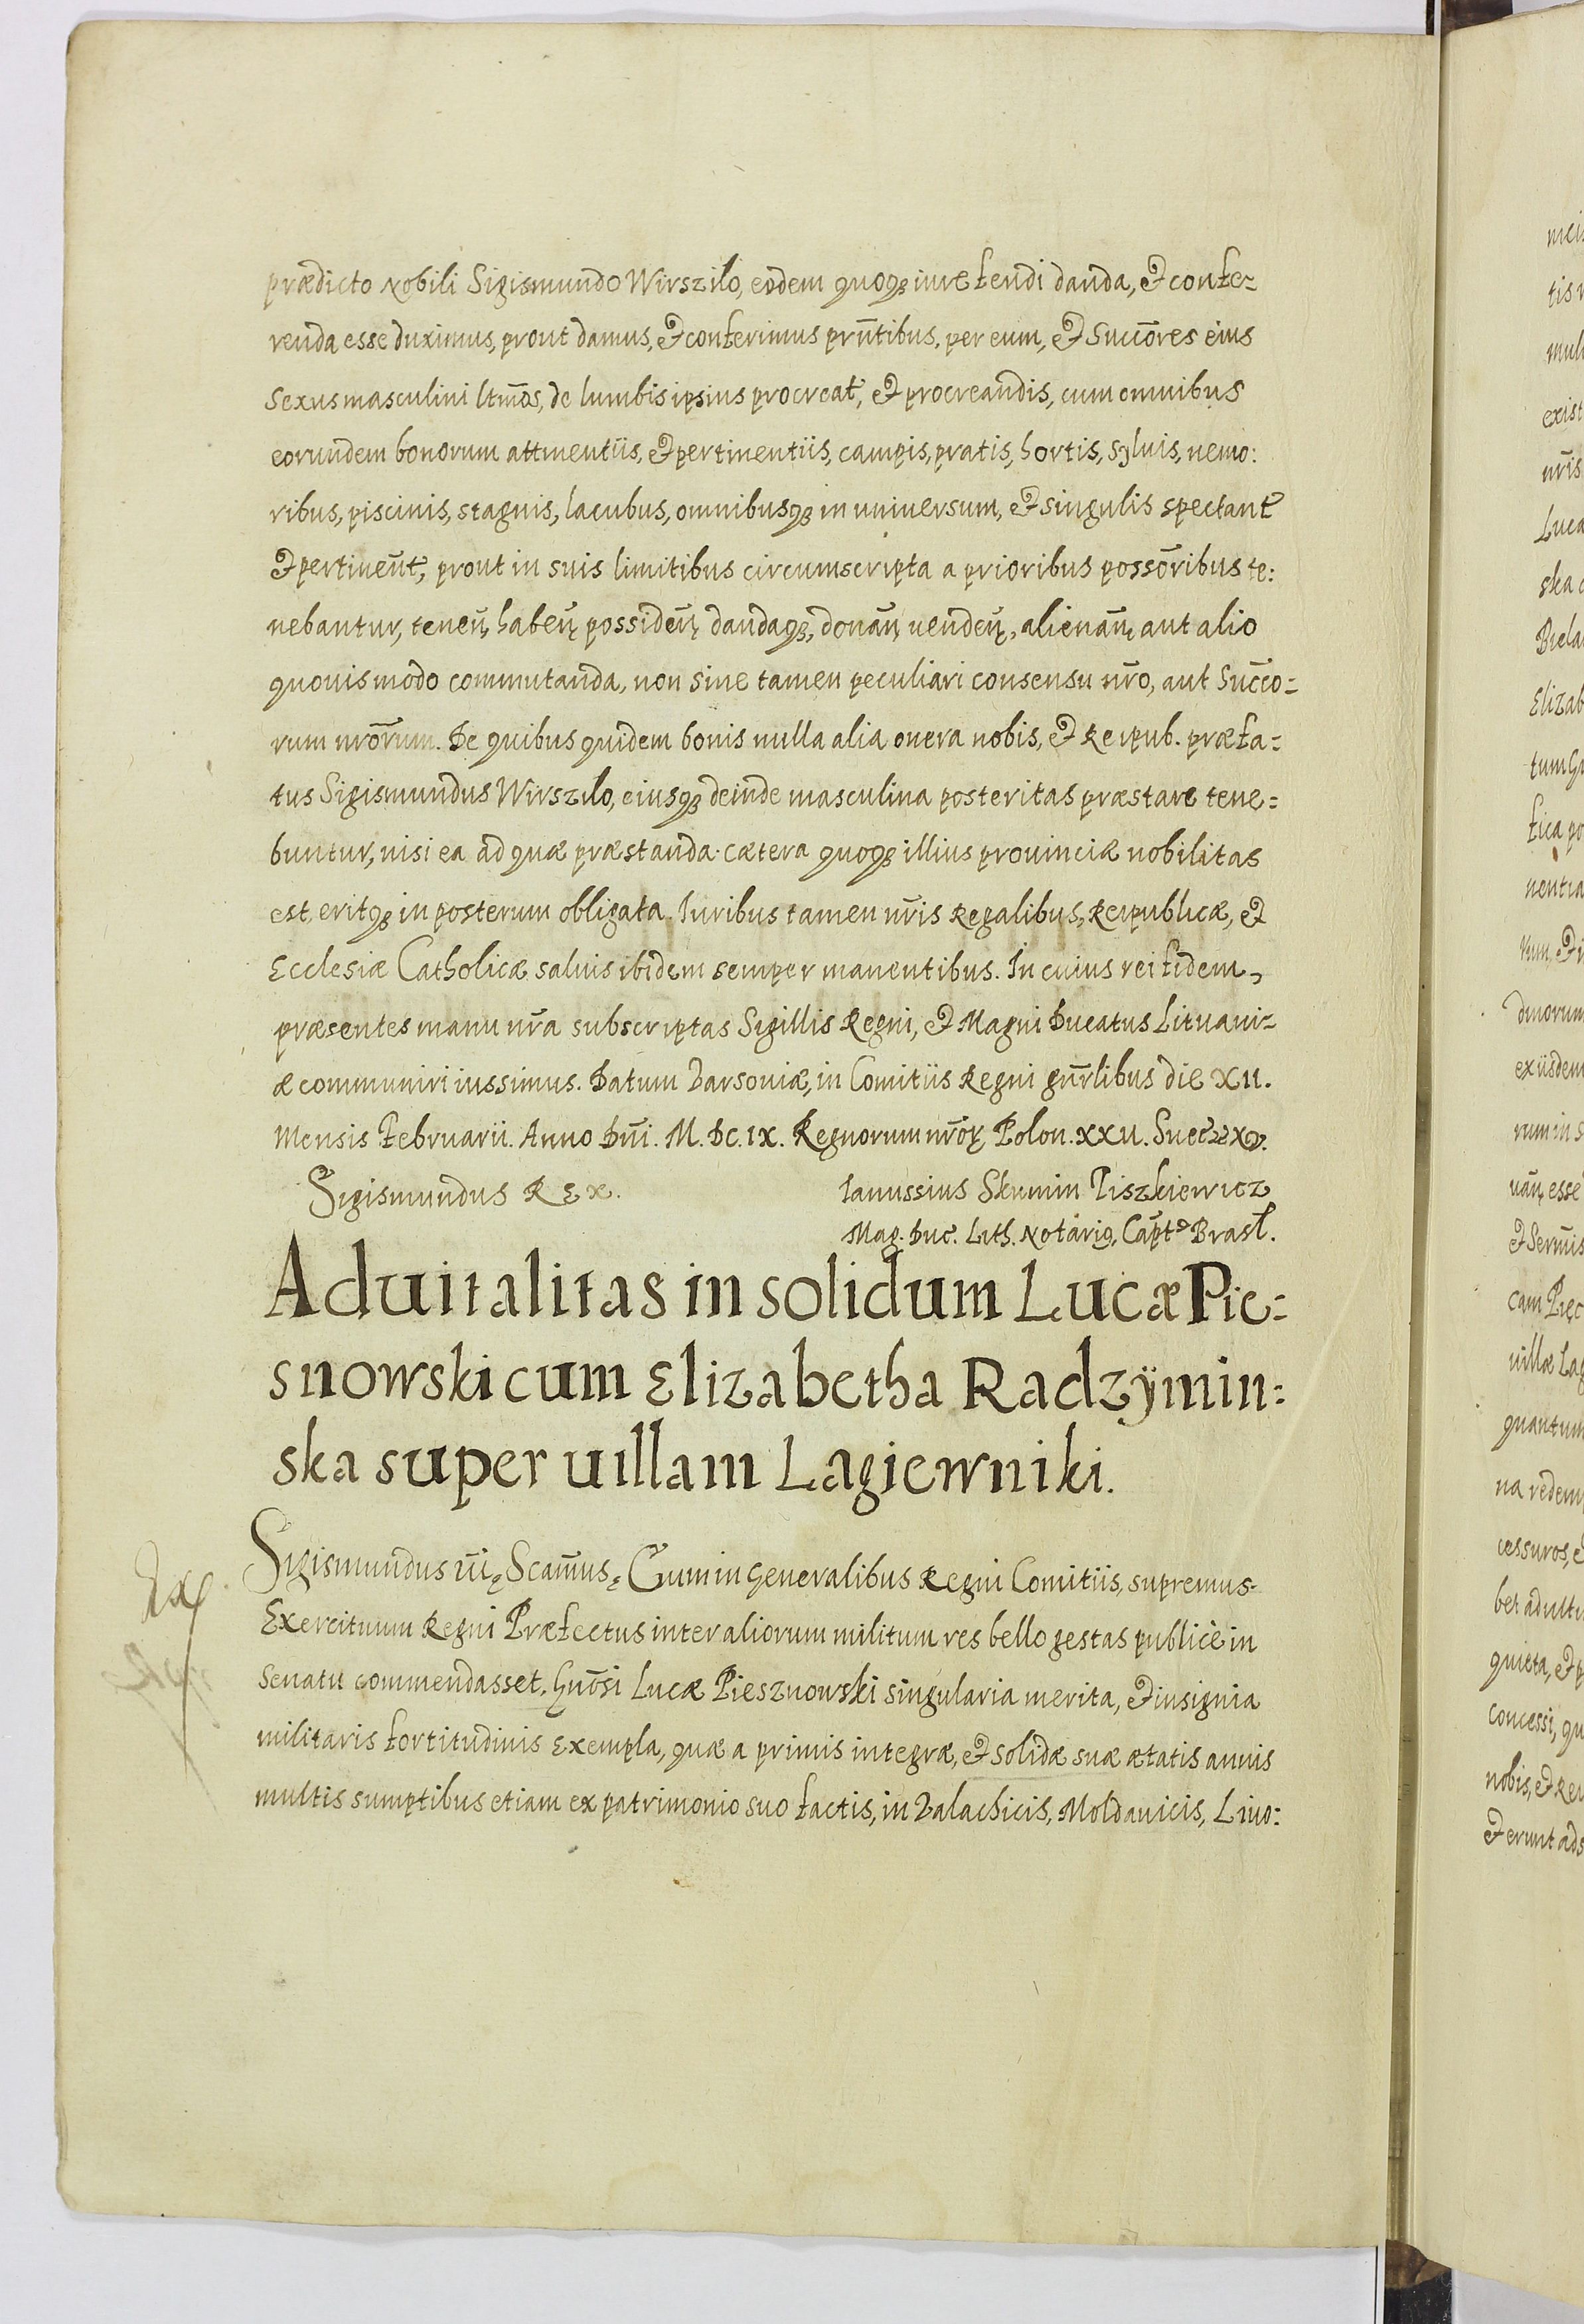 prædicto Nobili Sigismundo Wirszilo, eodem quoqꝫ iure feudi danda, et confe-
renda esse duximus, prout damus, et conferimus prn̄tibus, per eum, et Succōres eius
Sexus masculini ltm̄os, de lumbis ipsius procreat, et procreandis, cum omnibus
eorundem bonorum attinentiis, et pertinentiis, campis, pratis, hortis, syluis, nemo:
ribus, piscinis, stagnis, lacubus, omnibusqꝫ in uniuersum, et singulis spectant
et pertinen̄t, prout in suis limitibus circumscripta a prioribus possōribus te:
nebantur, teneñ, habeñ, possideñ, dandaqꝫ, donañ, uendeñ, alienañ, aut alio
quouis modo commutanda, non sine tamen peculiari consensu nr̄o, aut Succo-
rum nrōrum. De quibus quidem bonis nulla alia onera nobis, et Reipub. præfa-
tus Sigismundus Wirszilo, eiusqꝫ deinde masculina posteritas præstare tene-
buntur, nisi ea ad quæ præstanda cætera quoqꝫ illius prouinciæ nobilitas
est, eritqꝫ in posterum obligata. Iuribus tamen nr̄is Regalibus, Reipublicæ, et
Ecclesiæ Catholicæ saluis ibidem semper manentibus. In cuius rei fidem,
præsentes manu nr̄a subscriptas Sigillis Regni, et Magni Ducatus Lituani-
æ communiri iussimus. Datum Varsouiæ, in Comitiis Regni gnr̄libus die XII.
Mensis Februarii. Anno Dn̄i. M. DC. IX. Regnorum nrōꝝ Polon. XXII. Suec XV.
Sigismundus Rex.
Ianussius Skumin Tiszkiewicz
Mag. Duc. Lith. Notariꝯ, Capt Brasl.
Aduitalitas in solidum Lucæ Pie-
snowski cum Elizabetha Radzÿmin-
ska super uillam Lagiewniki.
Sigismundus III, Scam̄us, Cum in Generalibus Regni Comitiis, supremus
Exercituum Regni Præfectus inter aliorum militum res bello gestas publicè in
Senatu commendasset, Gnōsi Lucæ Piesznowski singularia merita, et insignia
militaris fortitudinis exempla, quæ a primis integræ, et solidæ suæ ætatis annis
multis sumptibus etiam ex patrimonio suo factis, in Valachicis, Moldauicis, Liuo: